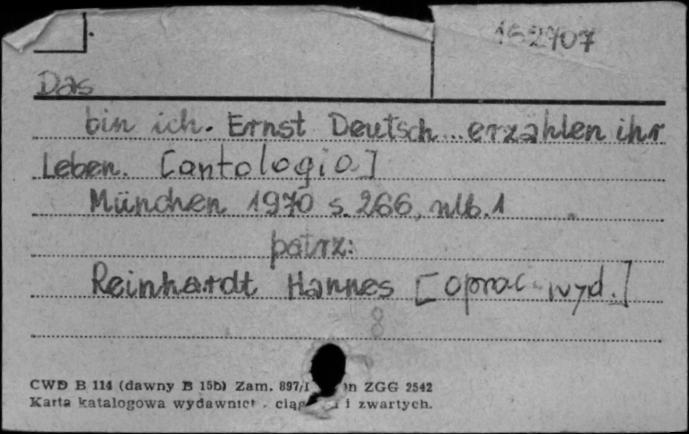 152707
Das
bin ich. Ernst Deutsch... erzählen ihr
Leben. [antologia]
München 1970 s. 266, nlb. 1
patrz:
Reinhardt Hannes [oprac. wyd.]
CWD B 114 (dawny B 15b) Zam. 897/I ZGG 2542
Karta katalogowa wydawnict i zwartych.